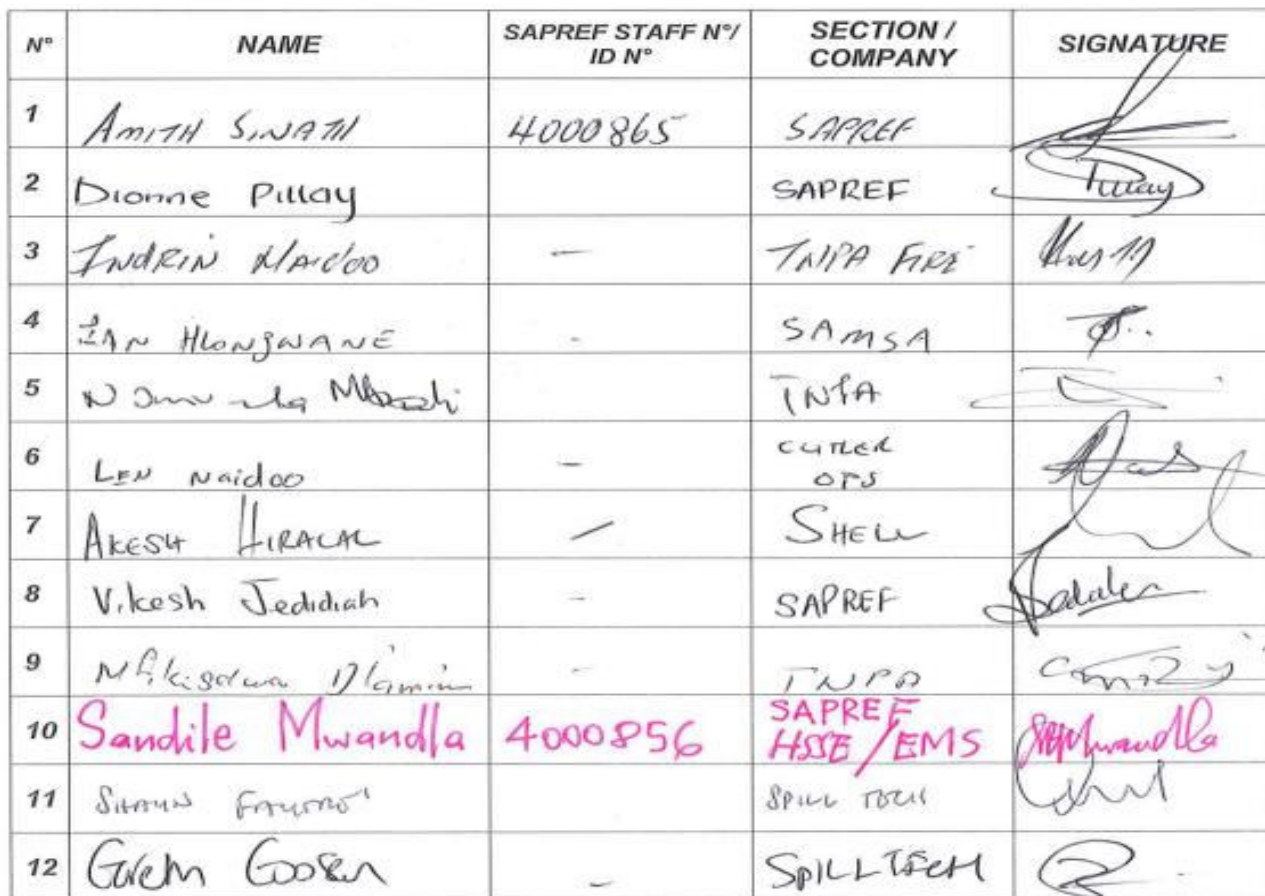 N° NAME SAPREF STAFF N°/ ID N° SECTION / COMPANY SIGNATURE
1 AMITH SINATH 4000865 SAPREF
2 Dionne Pillay SAPREF Pillay
3 INDRIN NAIDOO — TNPA FIRE
4 IAN HLONGWANE - SAMSA
5 TNPA
6 LEN Naidoo - CUTLER OPS
7 AKESH HIRALAL / SHELL
8 Vikesh Jedidiah - SAPREF
9 Dlamini - TNPA
10 Sandile Mwandla 4000856 SAPREF HSSE/EMS SBMwandla
11 SHAUN SPILL TECH
12 Gareth Goosen - SPILLTECH